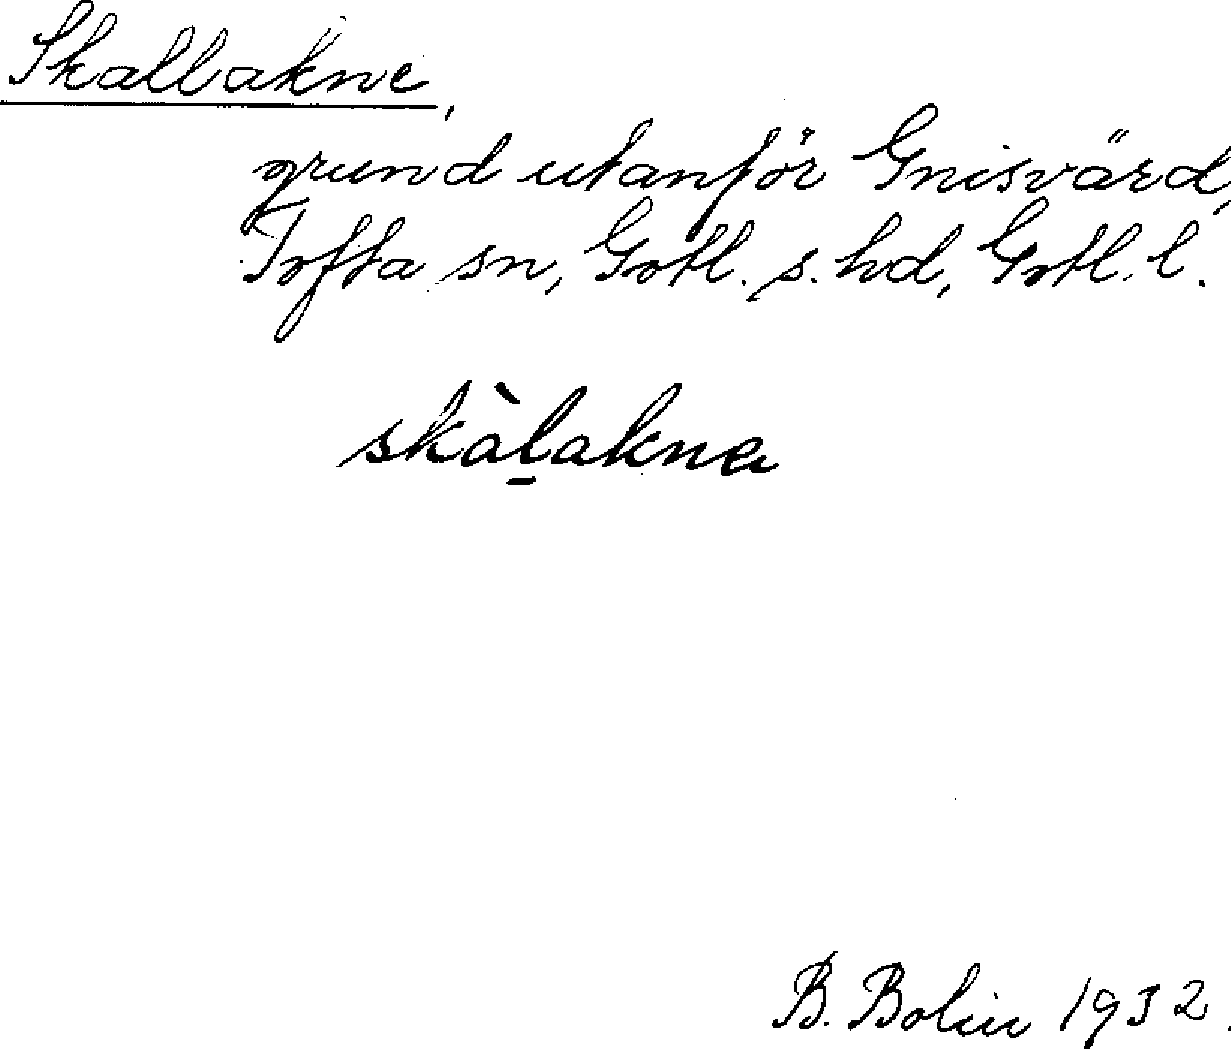 Skallakne,
grund utanför Gnisvärd,
Tofta sn, Gotl. s. hd, Gotl. l.
skàl̠akna
B. Bolin 1932.